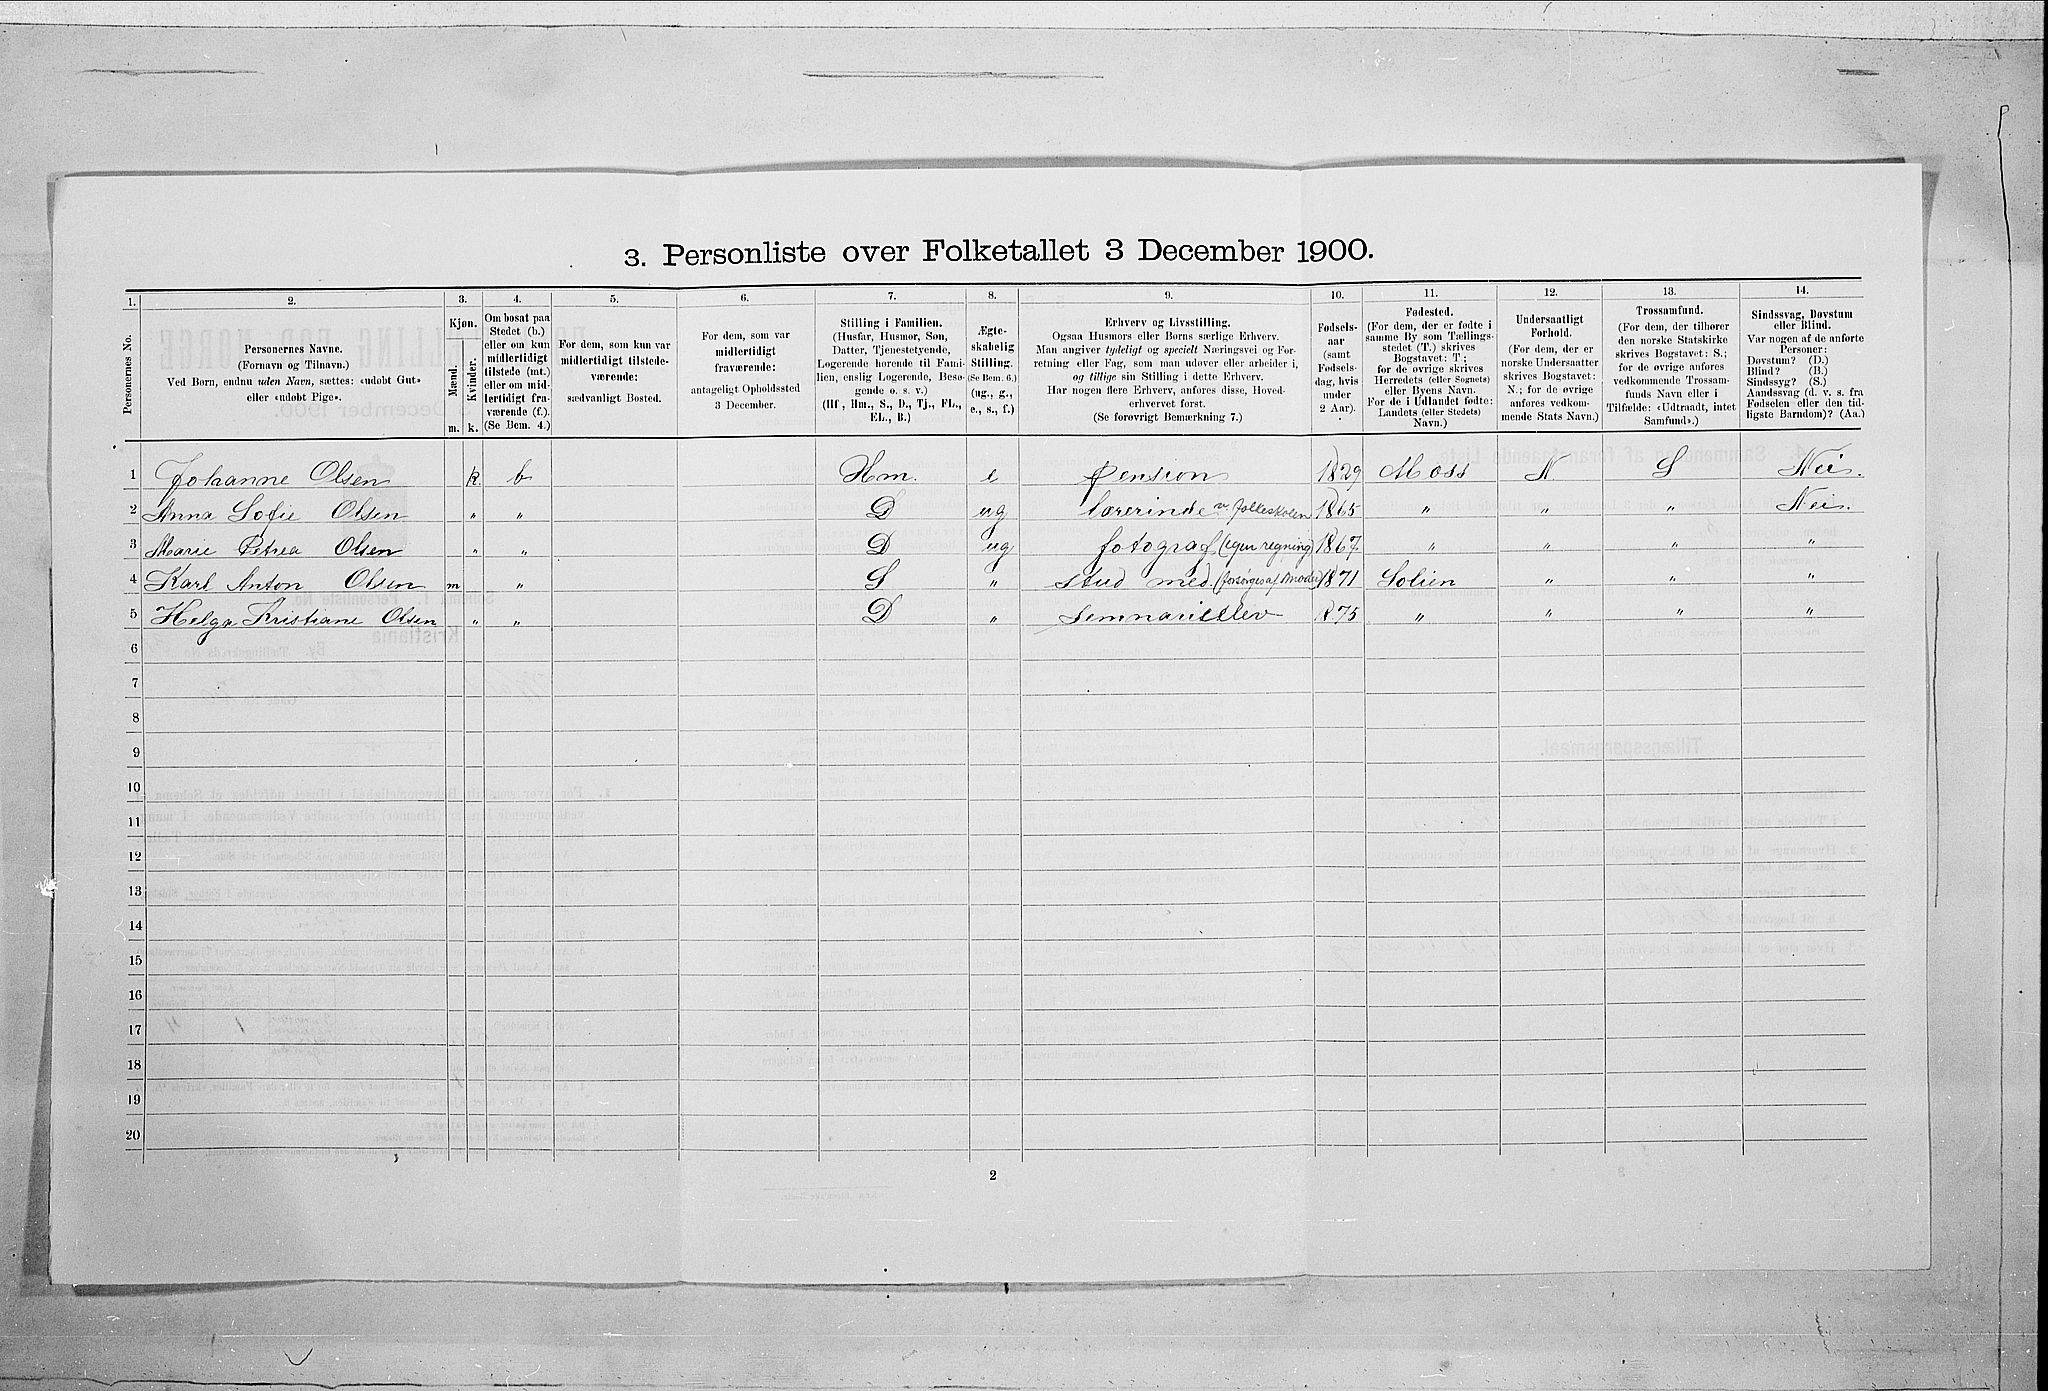 3. Personliste over Folketallet 3 December 1900.
1. 2. 3. 4. 5. 6. 7. 8. 9. 10. 11. 12. 13. 14.
Personernes No.
Personernes Navne.
(Fornavn og Tilnavn.)
Ved Børn, endnu uden Navn, sættes: «udøbt Gut»
eller «udøbt Pige».
Kjøn.
Mænd.
Kvinder.
m. k.
Om bosat paa
Stedet (b.)
eller om kun
midlertidigt
tilstede (mt.)
eller om mid-
lertidigt fra-
værende (f.).
(Se Bem. 4.)
For dem, som kun var
midlertidigt tilstede-
værende:
sædvanligt Bosted.
For dem, som var
midlertidigt
fraværende:
antageligt Opholdssted
3 December.
Stilling i Familien.
(Husfar, Husmor, Søn,
Datter, Tjenestetyende,
Logerende hørende til Fami-
lien, enslig Logerende, Besø-
gende o. s. v.)
(Hf, Hm., S., D., Tj., FL.,
EL., B.)
Ægte-
skabelig
Stilling.
(Se Bem. 6.)
(ug., g.,
e., s., f.)
Erhverv og Livsstilling.
Ogsaa Husmors eller Børns særlige Erhverv.
Man angiver tydeligt og specielt Næringsvei og For-
retning eller Fag, som man udøver eller arbeider i,
og tillige sin Stilling i dette Erhverv.
Har nogen flere Erhverv, anføres disse, Hoved-
erhvervet først.
(Se forøvrigt Bemærkning 7.)
Fødsels-
aar
(samt
Fødsels-
dag, hvis
under
2 Aar).
Fødested.
(For dem, der er fødte i
samme By som Tællings-
stedet (T.) skrives
Bogstavet: T;
for de øvrige skrives
Herredets (eller Sognets)
eller Byens Navn.
For de i Udlandet fødte:
Landets (eller Stedets)
Navn.)
Undersaatligt
Forhold.
(For dem, der er
norske Undersaatter
skrives Bogstavet:
N.; for de øvrige
anføres vedkom-
mende Stats Navn.)
Trossamfund.
(For dem, der tilhører
den norske Statskirke
skrives Bogstavet: S.;
for de øvrige anføres
vedkommende Trossam-
funds Navn eller i
Tilfælde: «Udtraadt, intet
Samfund».)
Sindssvag, Døvstum
eller Blind.
Var nogen af de anførte
Personer:
Døvstum? (D.)
Blind? (B.)
Sindssyg? (S.)
Aandssvag (d. v. s. fra
Fødselen eller den tid-
ligste Barndom)? (Aa.)
1 Johanne Olsen k. b Hm. e pension 1829 Moss N. S Nei.
2 Anna Sofie Olsen " " D ug lærerinde v. folkeskolen 1865 " " " Nei.
3 Marie Petrea Olsen " " D ug fotograf (egen regning) 1867 " " " "
4 Karl Anton Olsen m " S " stud med. (forsørges af Moder) 1871 Solien " " "
5 Helga Kristiane Olsen " " D " Seminarieelev 1875 " " " "
6
7
8
9
10
11
12
13
14
15
16
17
18
19
20
2